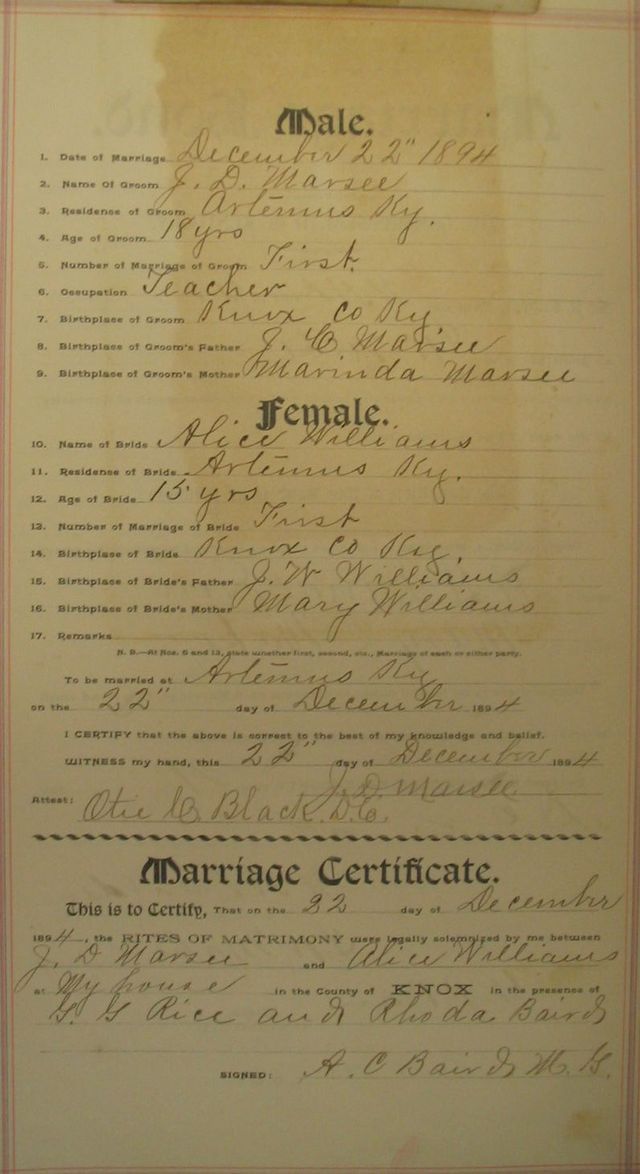 Male.
1. Date of Marriage December 22" 1894
2. Name Of Groom J. D. Marsee
3. Residence of Groom Artemus Ky.
4. Age of Groom 18 yrs
5. Number of Marriage of Groom First.
6. Occupation Teacher
7. Birthplace of Groom Knox Co Ky
8. Birthplace of Groom's Father J. C Marsee
9. Birthplace of Groom's Mother Marinda Marsee
Female.
10. Name of Bride Alice Williams
11. Residence of Bride Artemus Ky.
12. Age of Bride 15 yrs
13. Number of Marriage of Bride First
14. Birthplace of Bride Knox Co Ky.
15. Birthplace of Bride's Father J. W Williams
16. Birthplace of Bride's Mother Mary Williams
17. Remarks
N. B.—At Nos. 5 and 13, state whether first, second, etc., Marriage of each or either party.
To be married at Artemus Ky
on the 22" day of December 1894
I CERTIFY that the above is correct to the best of my knowledge and belief.
WITNESS my hand, this 22" day of December 1894
J. D Marsee
Attest: Otie C. Black. D.C.
Marriage Certificate.
This is to Certify, That on the 22 day of December
1894, the RITES OF MATRIMONY were legally solemnized by me between
J. D Marsee and Alice Williams
at My house in the County of KNOX in the presence of
G. G Rice and Rhoda Baird
SIGNED: A. C Baird M. G.